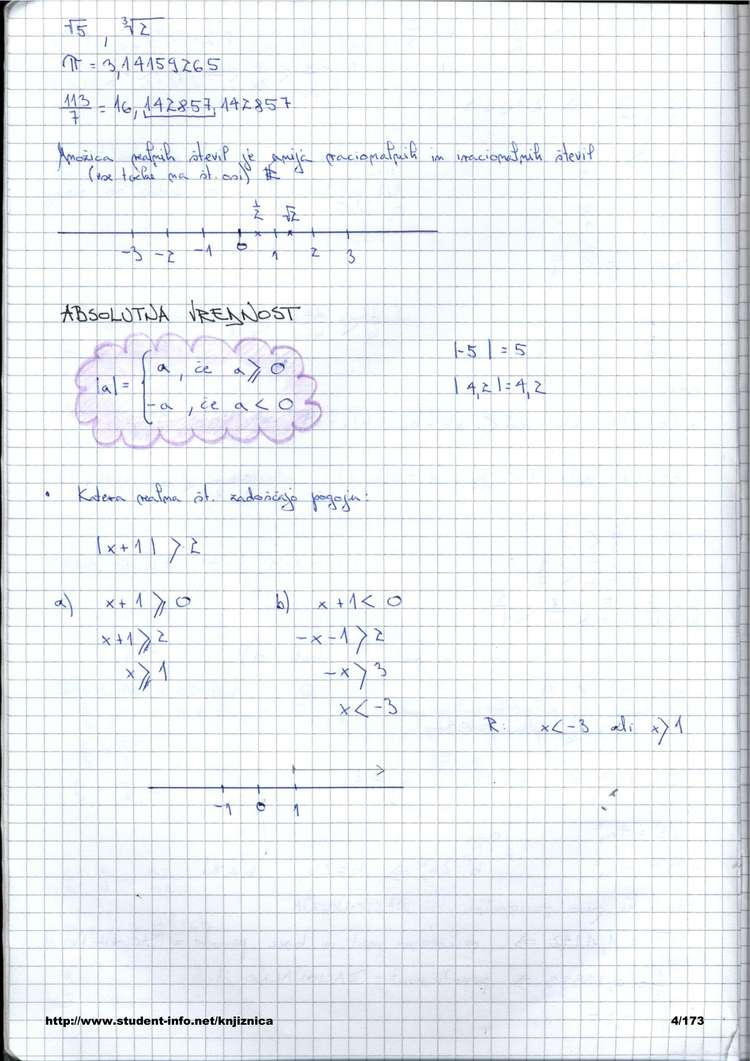 √5 , ∛2
π = 3,14159265
113/7 = 16,142857,142857
Množica realnih števil je unija racionalnih in iracionalnih števil
(vse točke na št. osi) R
1/2 √2
-3 -2 -1 0 1 2 3
ABSOLUTNA VREDNOST
|a| = { a , če a ≥ 0
-a , če a < 0
|-5| = 5
|4,2| = 4,2
• Katera realna št. zadoščajo pogoju:
|x+1| > 2
a) x+1 ≥ 0
x+1 ≥ 2
x ≥ 1
b) x+1 < 0
-x-1 > 2
-x > 3
x < -3
R: x < -3 ali x > 1
-1 0 1
http://www.student-info.net/knjiznica
4/173